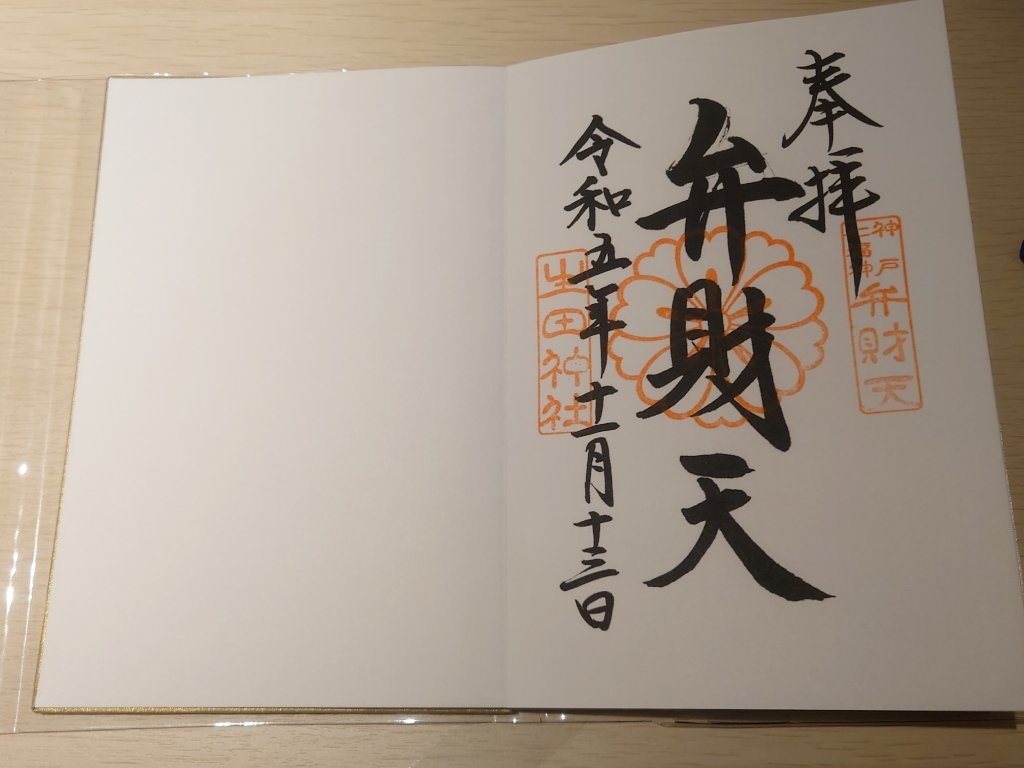 奉拝
神戸
七福神
弁財天
弁財天
令和五年十一月十三日
生田神社